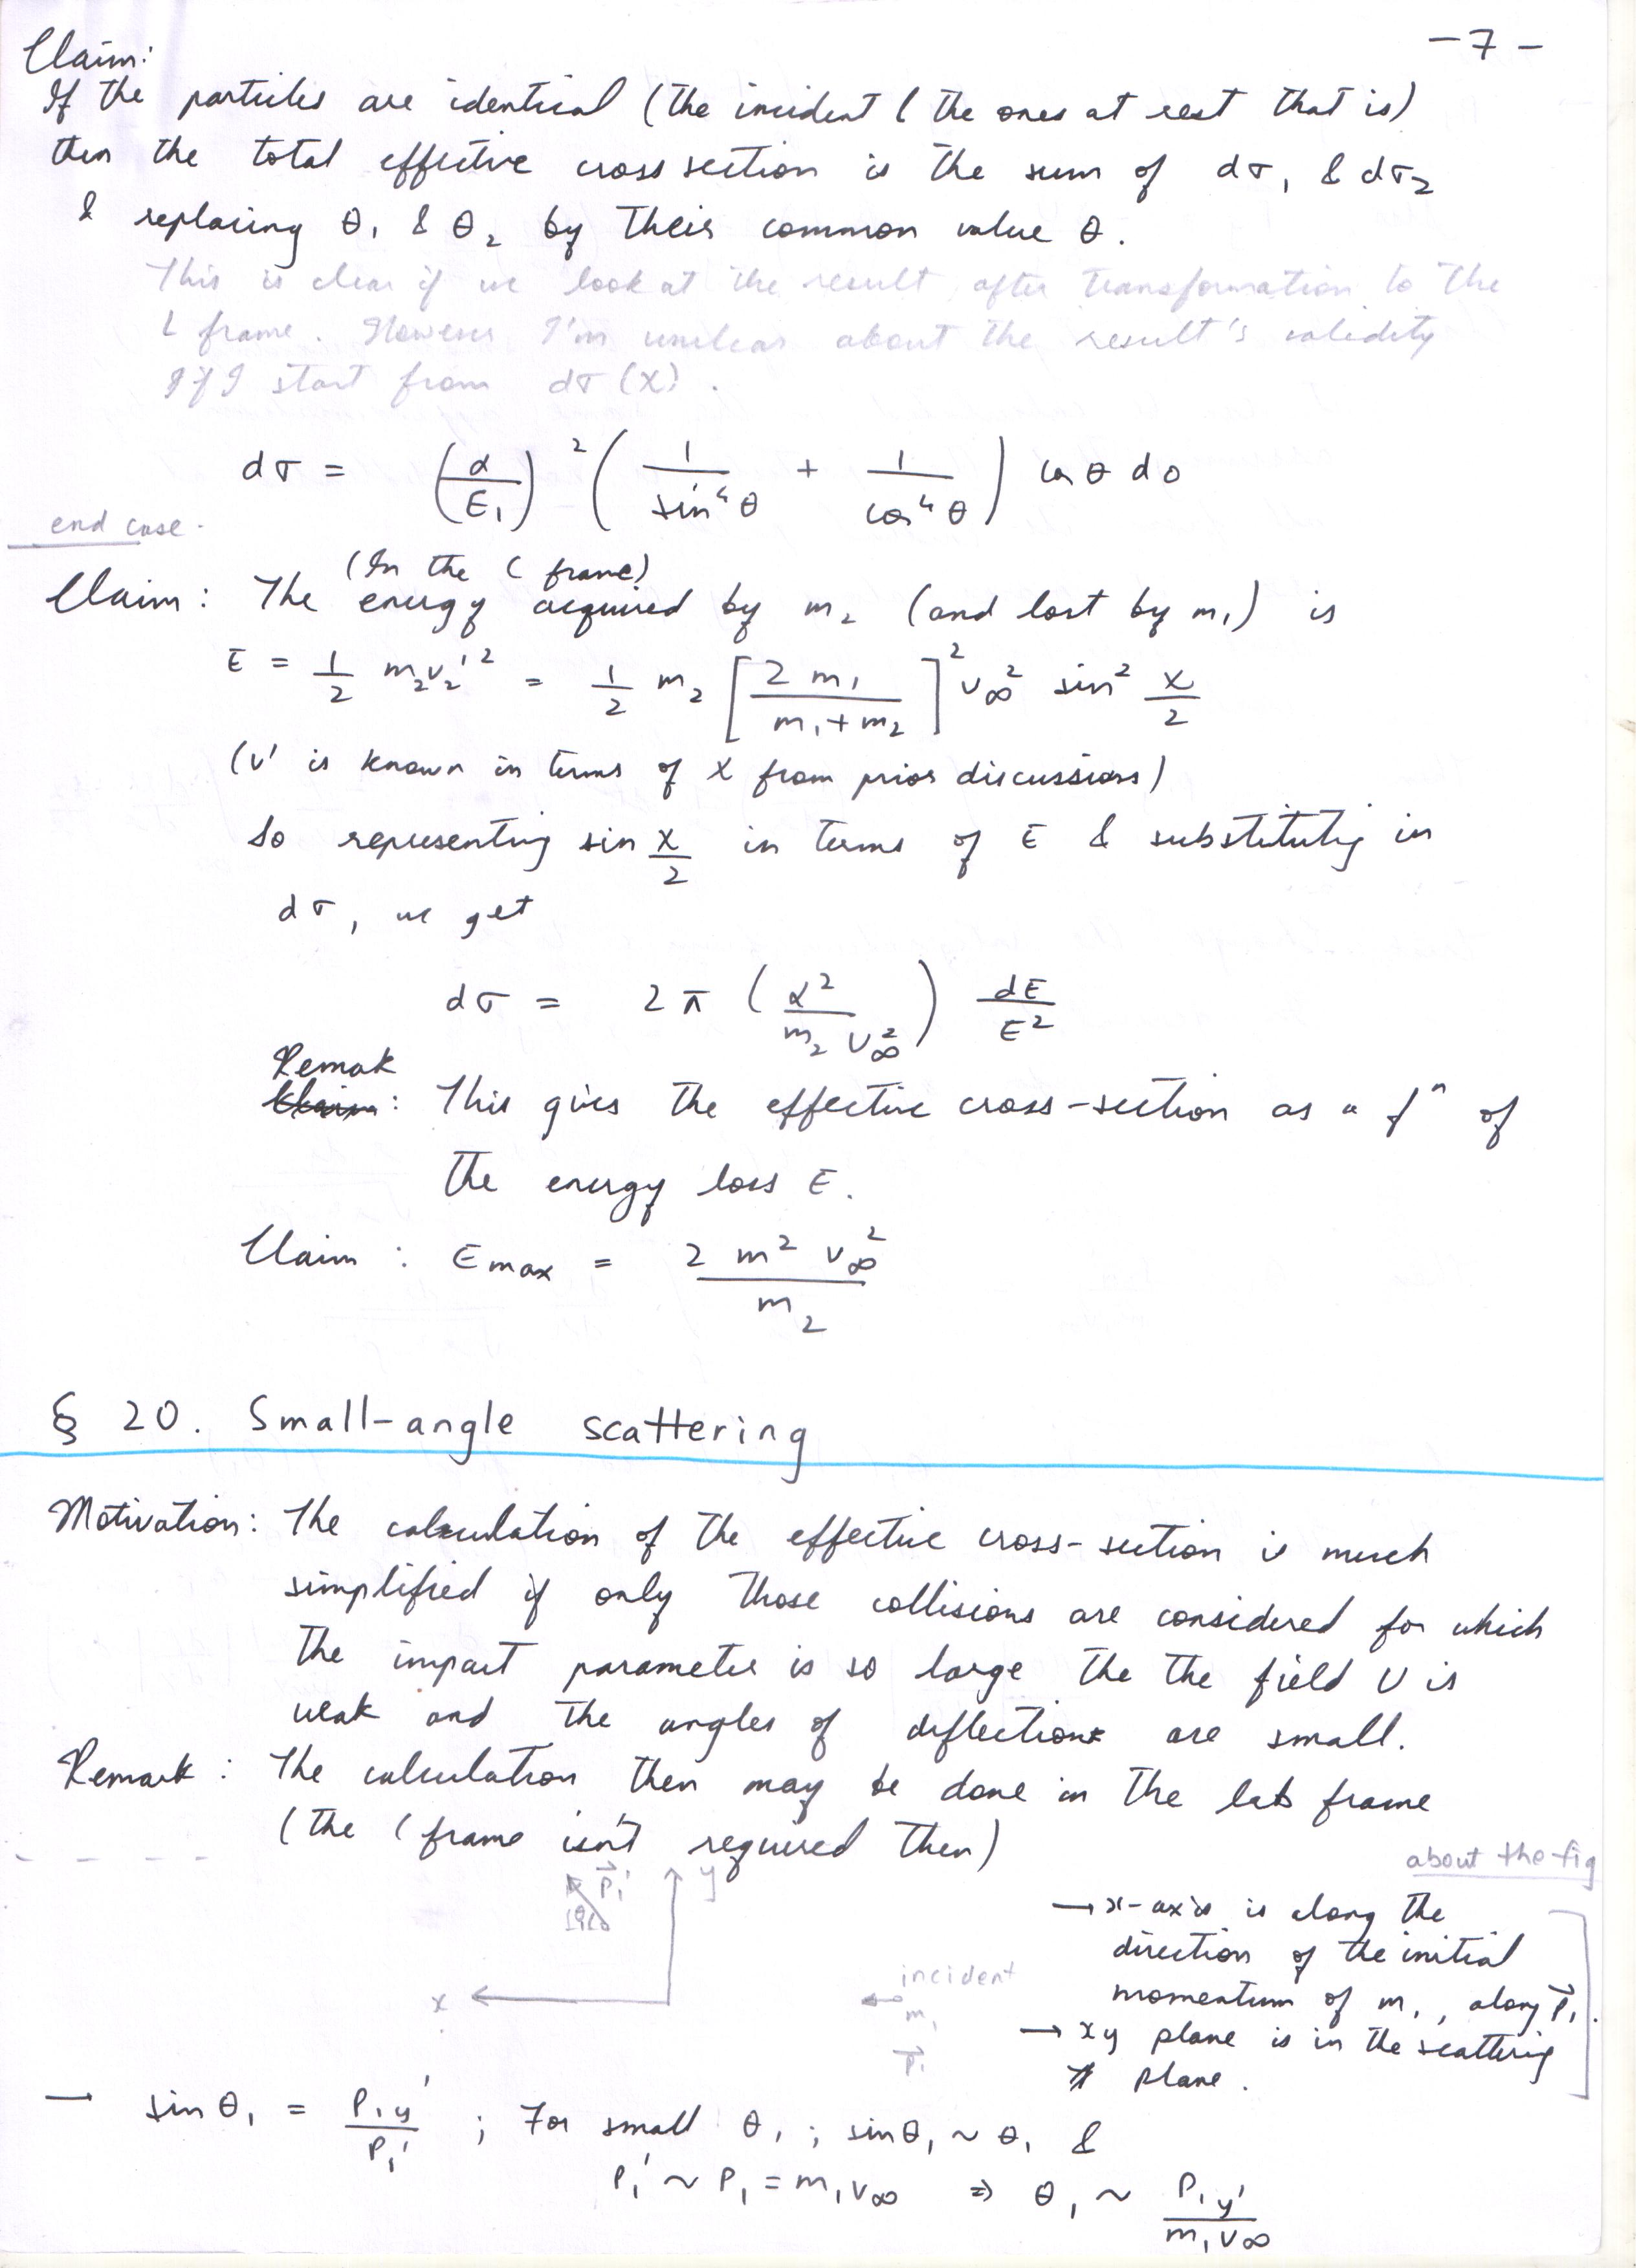 -7-
Claim:
If the particles are identical (the incident & the ones at rest that is)
then the total effective cross section is the sum of dσ₁ & dσ₂
& replacing θ₁ & θ₂ by their common value θ.
This is clear if we look at the result after transformation to the
L frame. However I'm unclear about the result's validity
if I start from dσ(χ).
dσ = (α/E₁)² (1/sin⁴θ + 1/cos⁴θ) cos θ do
end case.
(In the C frame)
Claim: The energy acquired by m₂ (and lost by m₁) is
E = 1/2 m₂v₂'² = 1/2 m₂ [2 m₁/(m₁+m₂)]² v∞² sin² χ/2
(v' is known in terms of χ from prior discussions)
So representing sin χ/2 in terms of E & substitutig in
dσ, we get
dσ = 2π (α²/m₂ v∞²) dE/E²
Remak
: This gives the effective cross-section as a fⁿ of
the energy loss E.
Claim : Emax = 2 m² v∞²/m₂
§ 20. Small-angle scattering
Motivation: The calculation of the effective cross-section is much
simplified if only those collisions are considered for which
the impact parameter is so large the the field U is
weak and the angles of deflection are small.
Remark : The calculation then may be done in the lab frame
(the C frame isn't required then)
about the fig
p⃗₁' y
θ₁
x
incident
m₁
p⃗₁
→ x-axis is along the
direction of the initial
momentum of m₁, along p⃗₁.
→ xy plane is in the scatterig
plane.
→ sin θ₁ = p₁y'/p₁' ; For small θ₁ ; sinθ₁ ~ θ₁ &
p₁' ~ p₁ = m₁v∞ ⇒ θ₁ ~ p₁y'/m₁v∞